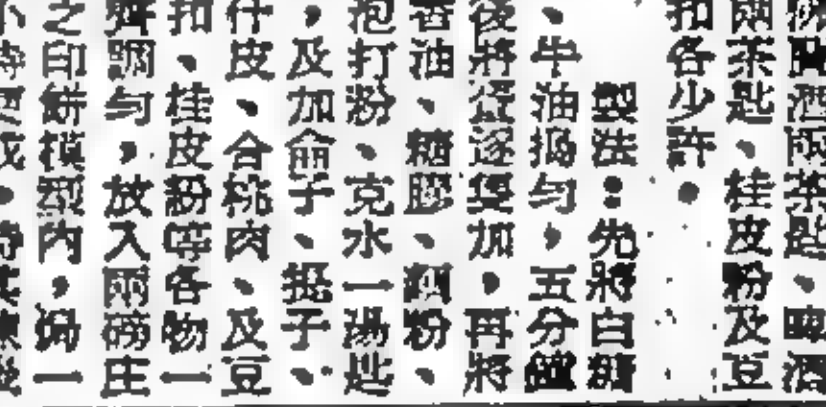 啤酒兩茶匙、啤酒
兩茶匙、桂皮粉及豆
扣各少許。
製法：先將白糖
、牛油搗勻，五分鐘
後將蛋逐隻加，再將
香油、糖膠、麵粉、
泡打粉、克水一湯匙
，及加侖子、提子、
什皮、合桃肉、及豆
扣、桂皮粉等各物一
齊調勻，放入兩磅庄
之印餅模型內，焗一